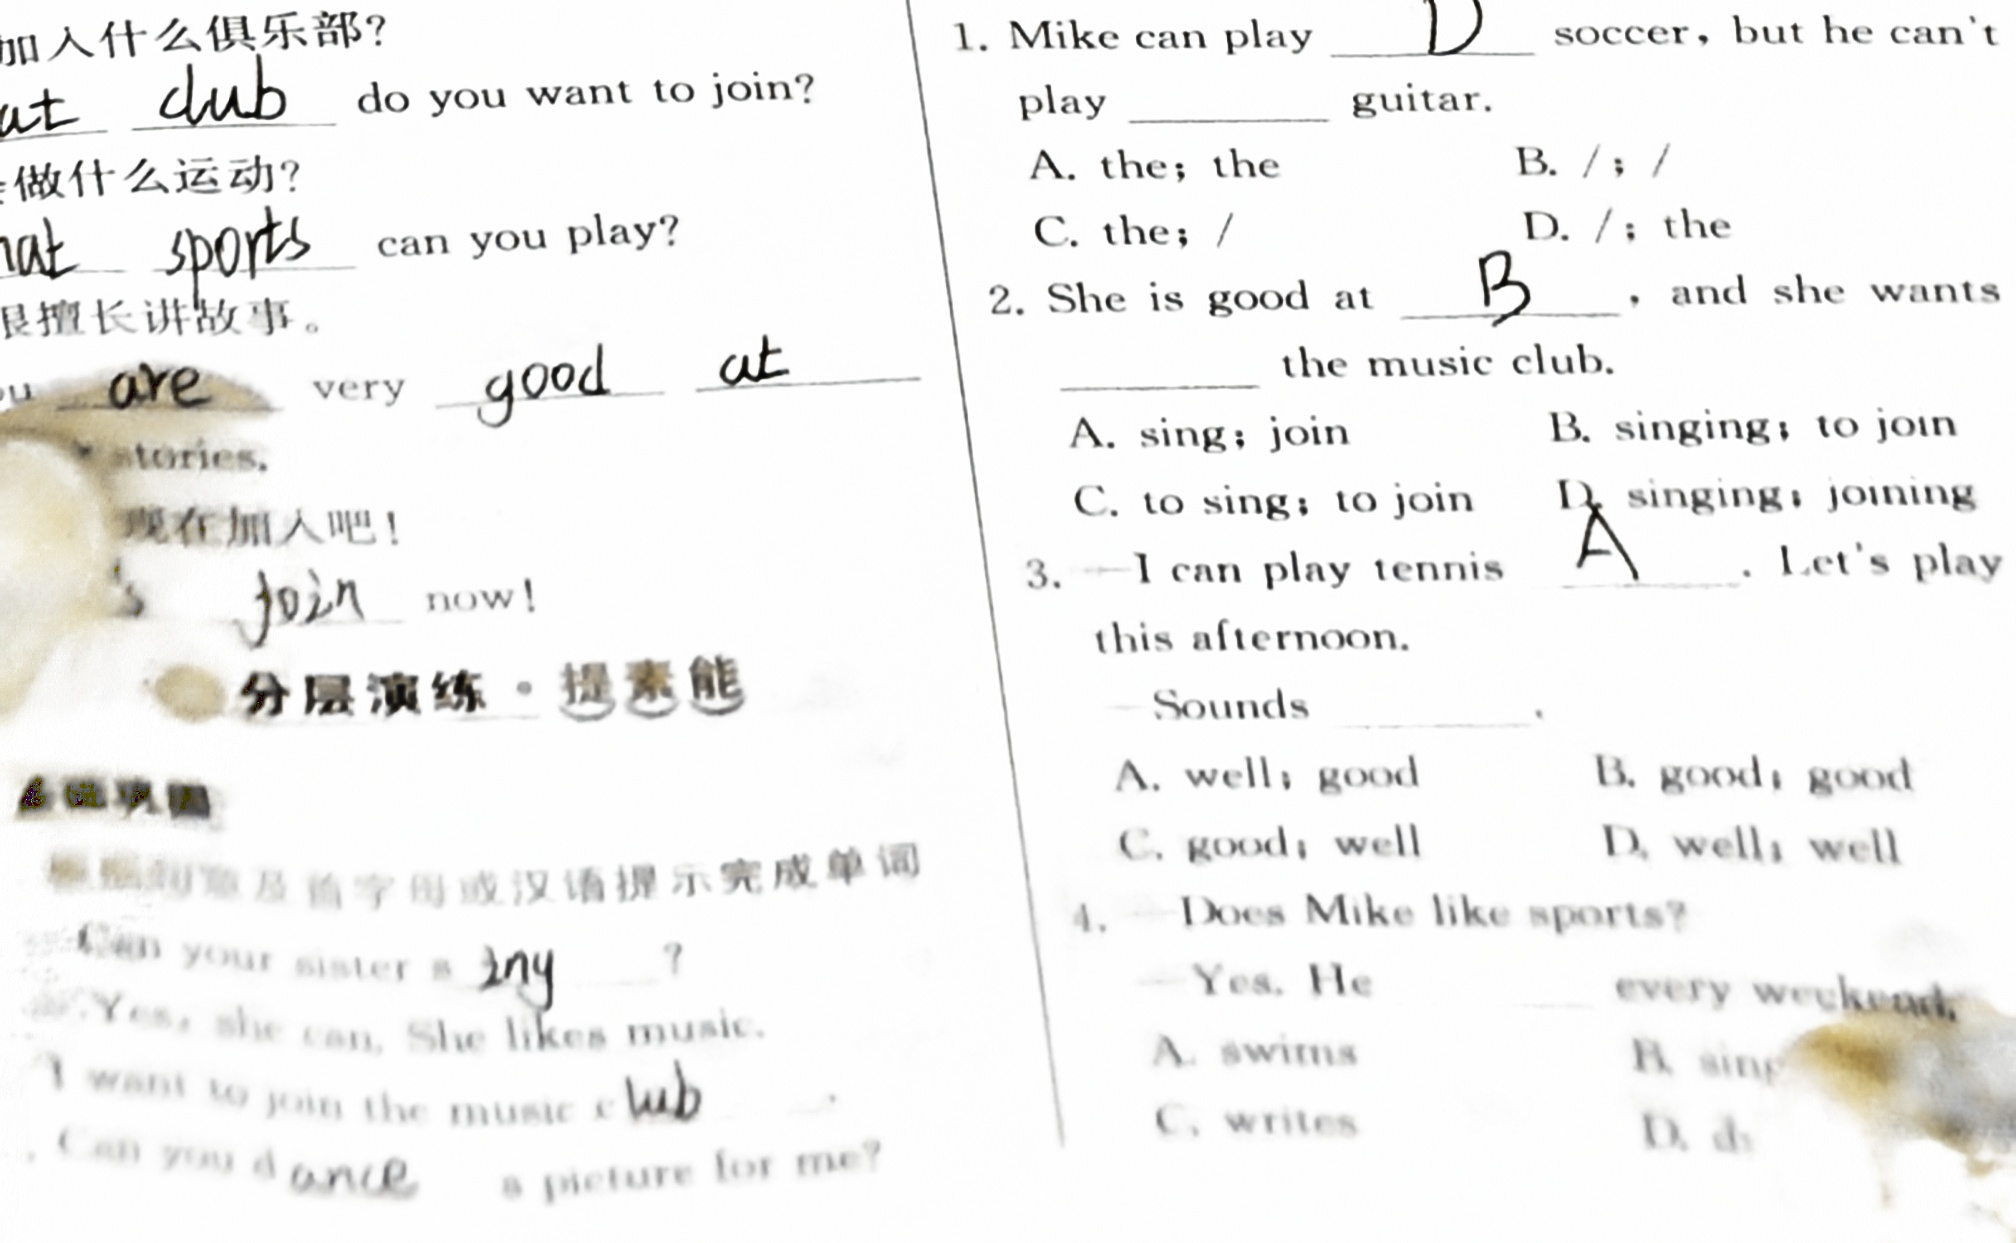 加入什么俱乐部?
at club do you want to join?
做什么运动?
hat sports can you play?
很擅长讲故事。
ou are very good at
stories.
现在加入吧!
's join now!
分层演练·提素能
句意及首字母或汉语提示完成单词
Can your sister s ing ?
Yes, she can. She likes music.
I want to join the music c lub .
Can you d ance a picture for me?
1. Mike can play D soccer, but he can't
play ______ guitar.
A. the; the B. /; /
C. the; / D. /; the
2. She is good at B , and she wants
______ the music club.
A. sing; join B. singing; to join
C. to sing; to join D. singing; joining
3. —I can play tennis A . Let's play
this afternoon.
—Sounds ______ .
A. well; good B. good; good
C. good; well D. well; well
4. —Does Mike like sports?
—Yes. He ______ every weekend.
A. swims B. sing
C. writes D. d